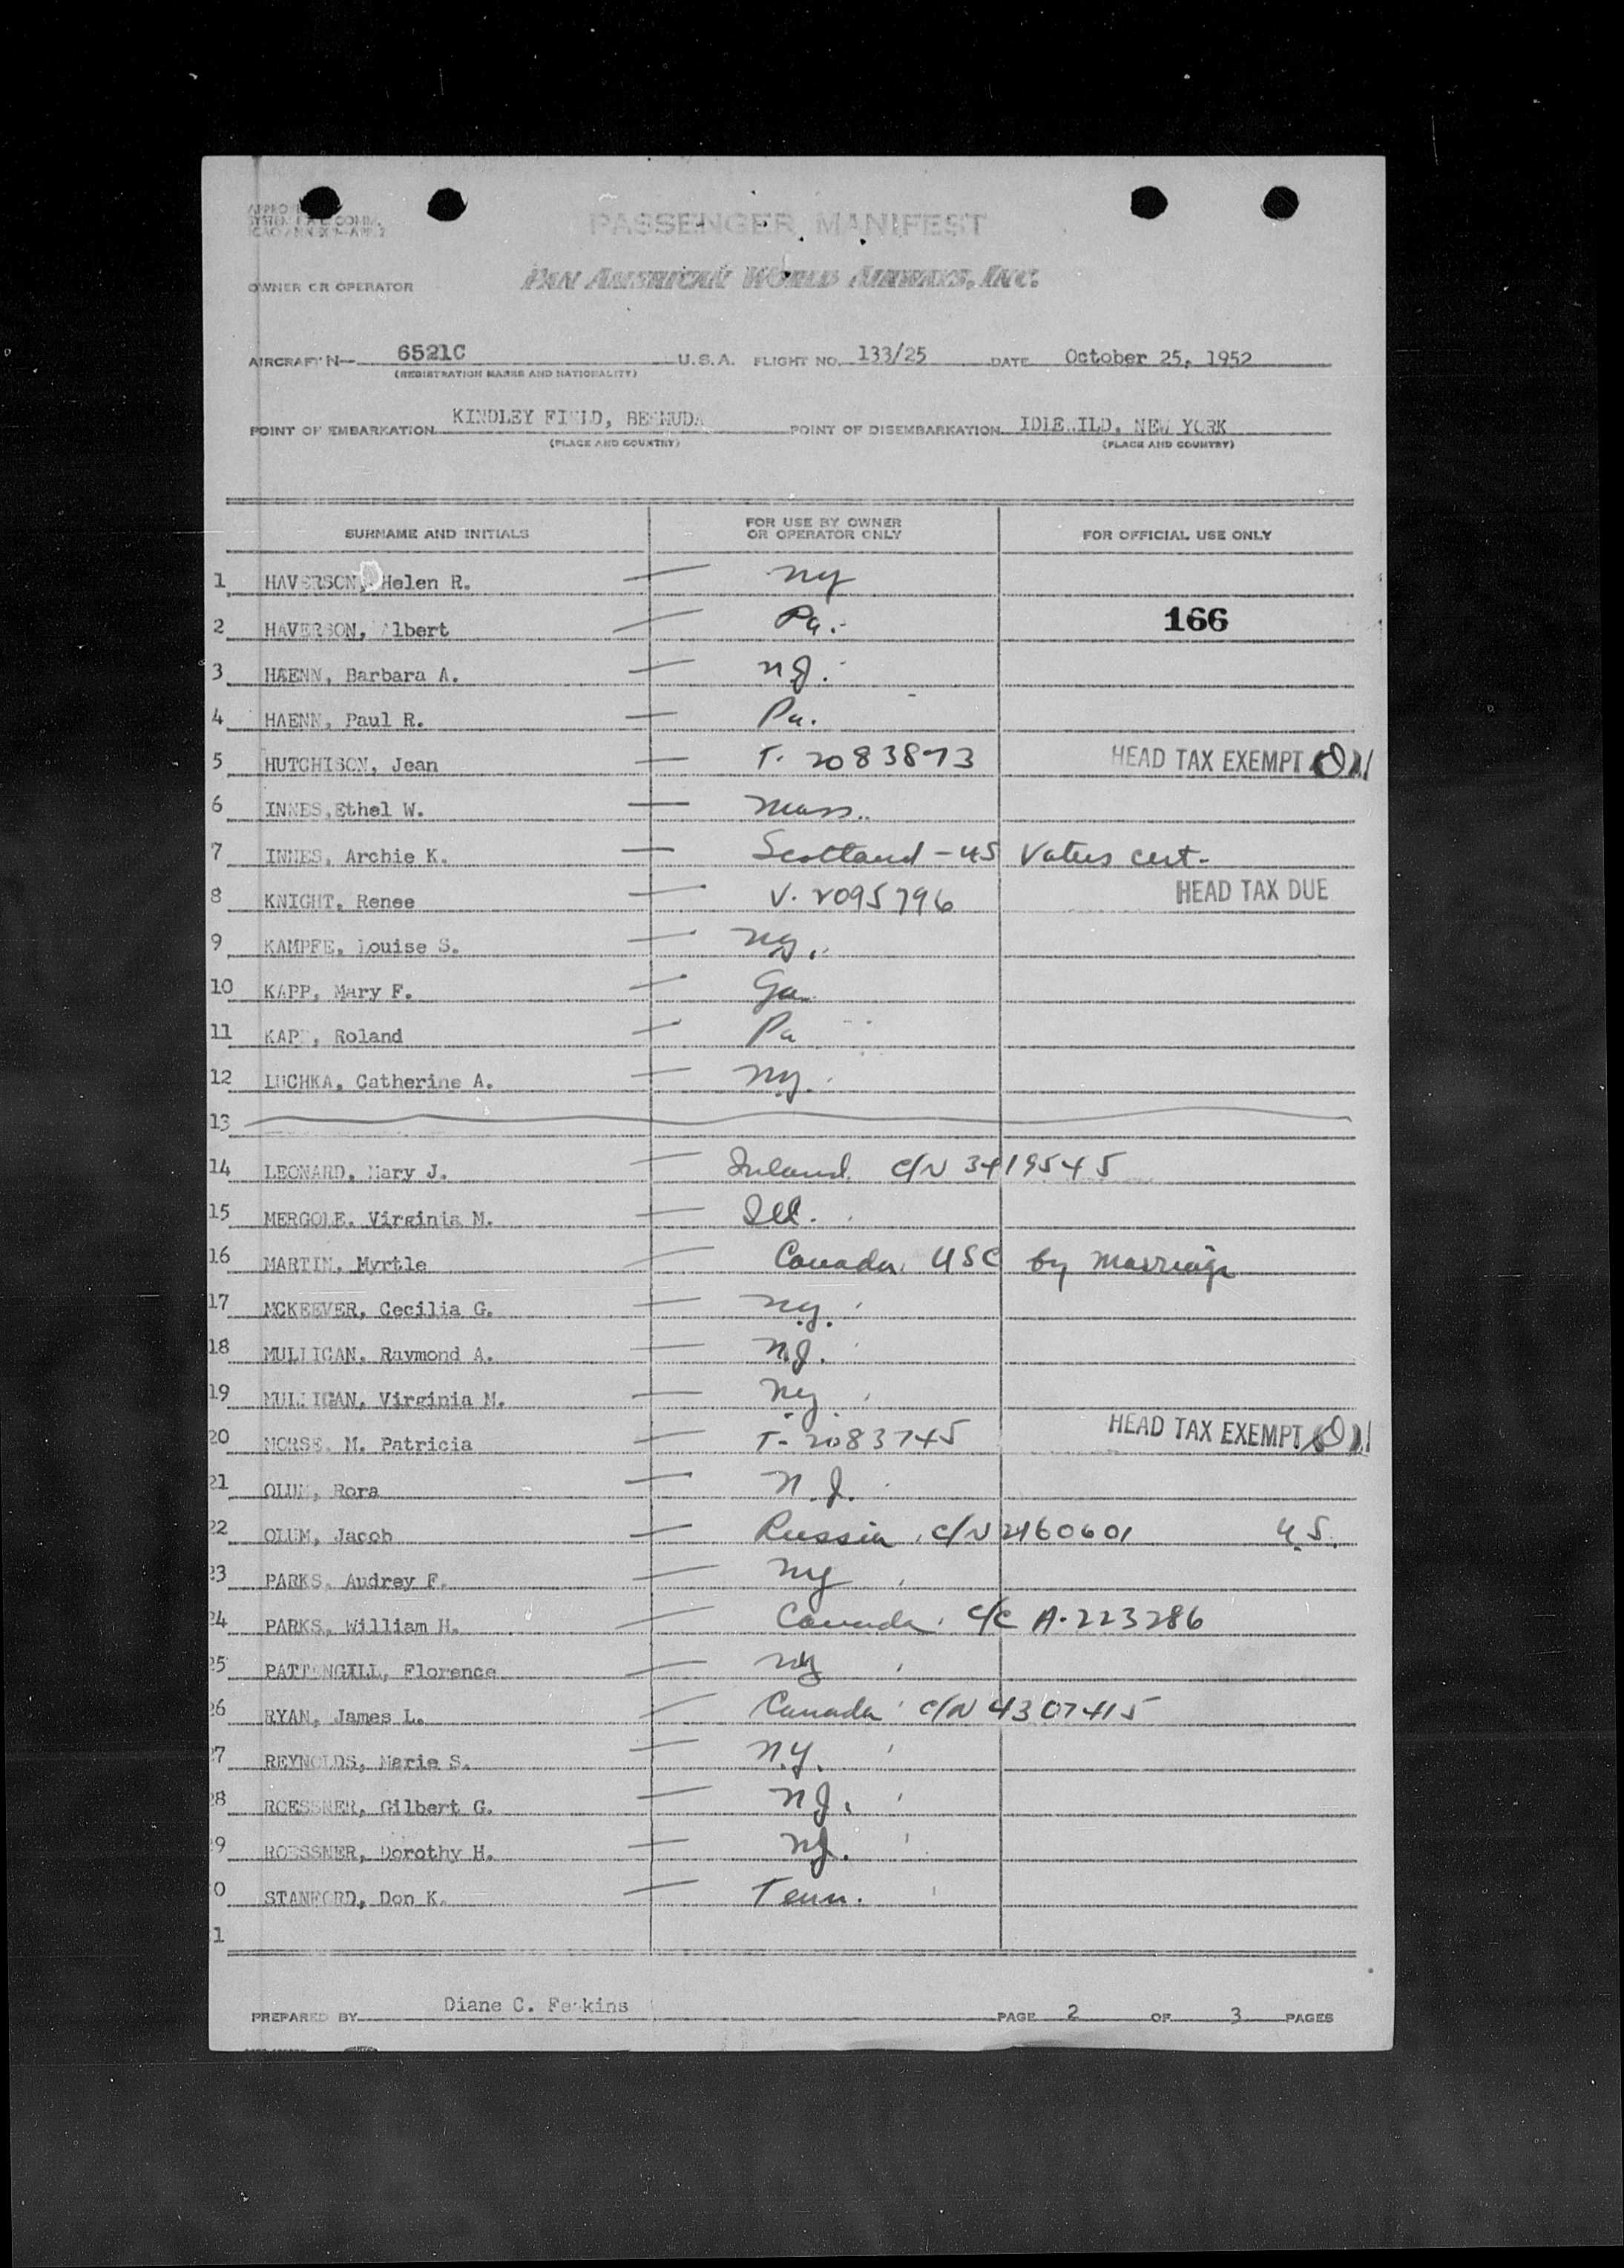 PASSENGER MANIFEST
OWNER OR OPERATOR PAN AMERICAN WORLD AIRWAYS, INC.
AIRCRAFT N— 6521C U.S.A. FLIGHT NO. 133/25 DATE October 25, 1952
(REGISTRATION MARKS AND NATIONALITY)
POINT OF EMBARKATION KINDLEY FIELD, BERMUDA POINT OF DISEMBARKATION IDLEWILD, NEW YORK
(PLACE AND COUNTRY) (PLACE AND COUNTRY)
SURNAME AND INITIALS FOR USE BY OWNER OR OPERATOR ONLY FOR OFFICIAL USE ONLY
1 HAVERSON, Helen R. — NY
2 HAVERSON, Albert — Pa. 166
3 HAENN, Barbara A. — N.J.
4 HAENN, Paul R. — Pa.
5 HUTCHISON, Jean — T. 2083873 HEAD TAX EXEMPT
6 INNES, Ethel W. — Mass.
7 INNES, Archie K. — Scotland - US Voters cert.
8 KNIGHT, Renee — V. 2095796 HEAD TAX DUE
9 KAMPFE, Louise S. — NY.
10 KAPP, Mary F. — Ga.
11 KAPP, Roland — Pa
12 LUCHKA, Catherine A. — NY.
13
14 LEONARD, Mary J. — Ireland. C/N 3419545
15 MERGOLE, Virginia M. — Ill.
16 MARTIN, Myrtle — Canada. USC by marriage
17 MCKEEVER, Cecilia G. — N.Y.
18 MULLIGAN, Raymond A. — N.J.
19 MULLIGAN, Virginia M. — NY
20 MORSE, M. Patricia — T- 2083745 HEAD TAX EXEMPT
21 OLUM, Rora — N.J.
22 OLUM, Jacob — Russia. C/N 2460601 U.S.
23 PARKS, Audrey F. — NY
24 PARKS, William H. — Canada. C/C A-223286
25 PATTENGILL, Florence — NY
26 RYAN, James L. — Canada C/N 4307415
27 REYNOLDS, Marie S. — N.Y.
28 ROESSNER, Gilbert G. — N.J.
29 ROESSNER, Dorothy H. — N.J.
0 STANFORD, Don K. — Tenn.
1
PREPARED BY Diane C. PAGE 2 OF 3 PAGES